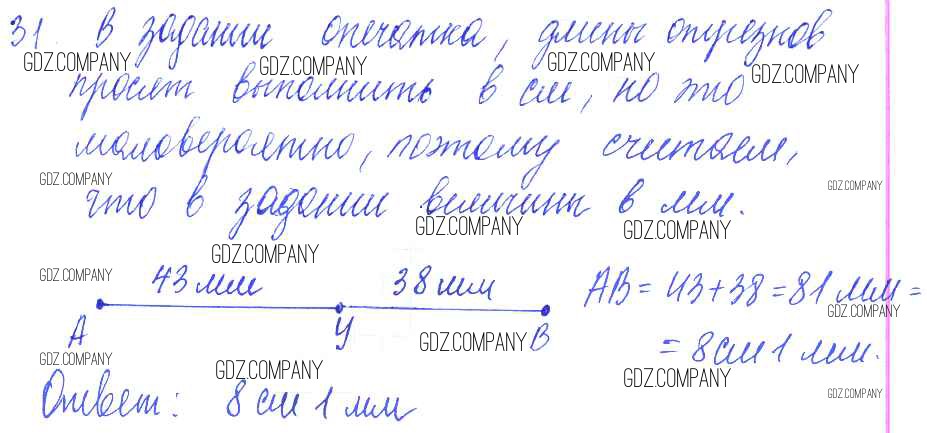 31. В задании опечатка, длины отрезков
GDZ.COMPANY GDZ.COMPANY GDZ.COMPANY GDZ.COMPANY
просят выполнить в см, но это
маловероятно, поэтому считаем,
GDZ.COMPANY GDZ.COMPANY
что в задании величины в мм.
GDZ.COMPANY GDZ.COMPANY
GDZ.COMPANY
GDZ.COMPANY 43 мм 38 мм AB = 43+38 = 81 мм =
GDZ.COMPANY
A У GDZ.COMPANY B = 8 см 1 мм.
GDZ.COMPANY GDZ.COMPANY GDZ.COMPANY
Ответ: 8 см 1 мм
GDZ.COMPANY